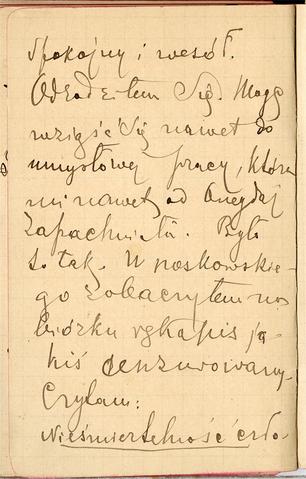 Spokojny i wesół.
Odrodziłem się. Mogę
wziąść się nawet do
umysłowej pracy, która
mi nawet od onegdaj
zapachniała. Było
to tak. W noskowskie-
go zobaczyłem na
biórku rękopis ja-
kiś cenzurowany.
Czytam:
Nieśmiertelność